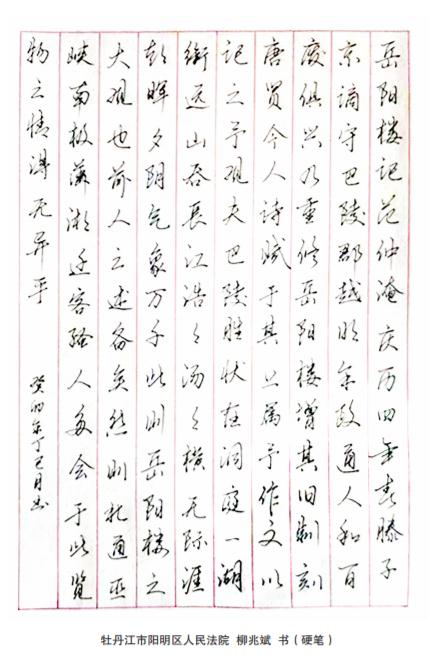 岳阳楼记范仲淹庆历四年春滕子
京谪守巴陵郡越明年政通人和百
废俱兴乃重修岳阳楼增其旧制刻
唐贤今人诗赋于其上属予作文以
记之予观夫巴陵胜状在洞庭一湖
衔远山吞长江浩々汤々横无际涯
朝晖夕阴气象万千此则岳阳楼之
大观也前人之述备矣然则北通巫
峡南极潇湘迁客骚人多会于此览
物之情得无异乎
癸卯年丁巳月书
牡丹江市阳明区人民法院 柳兆斌 书(硬笔)